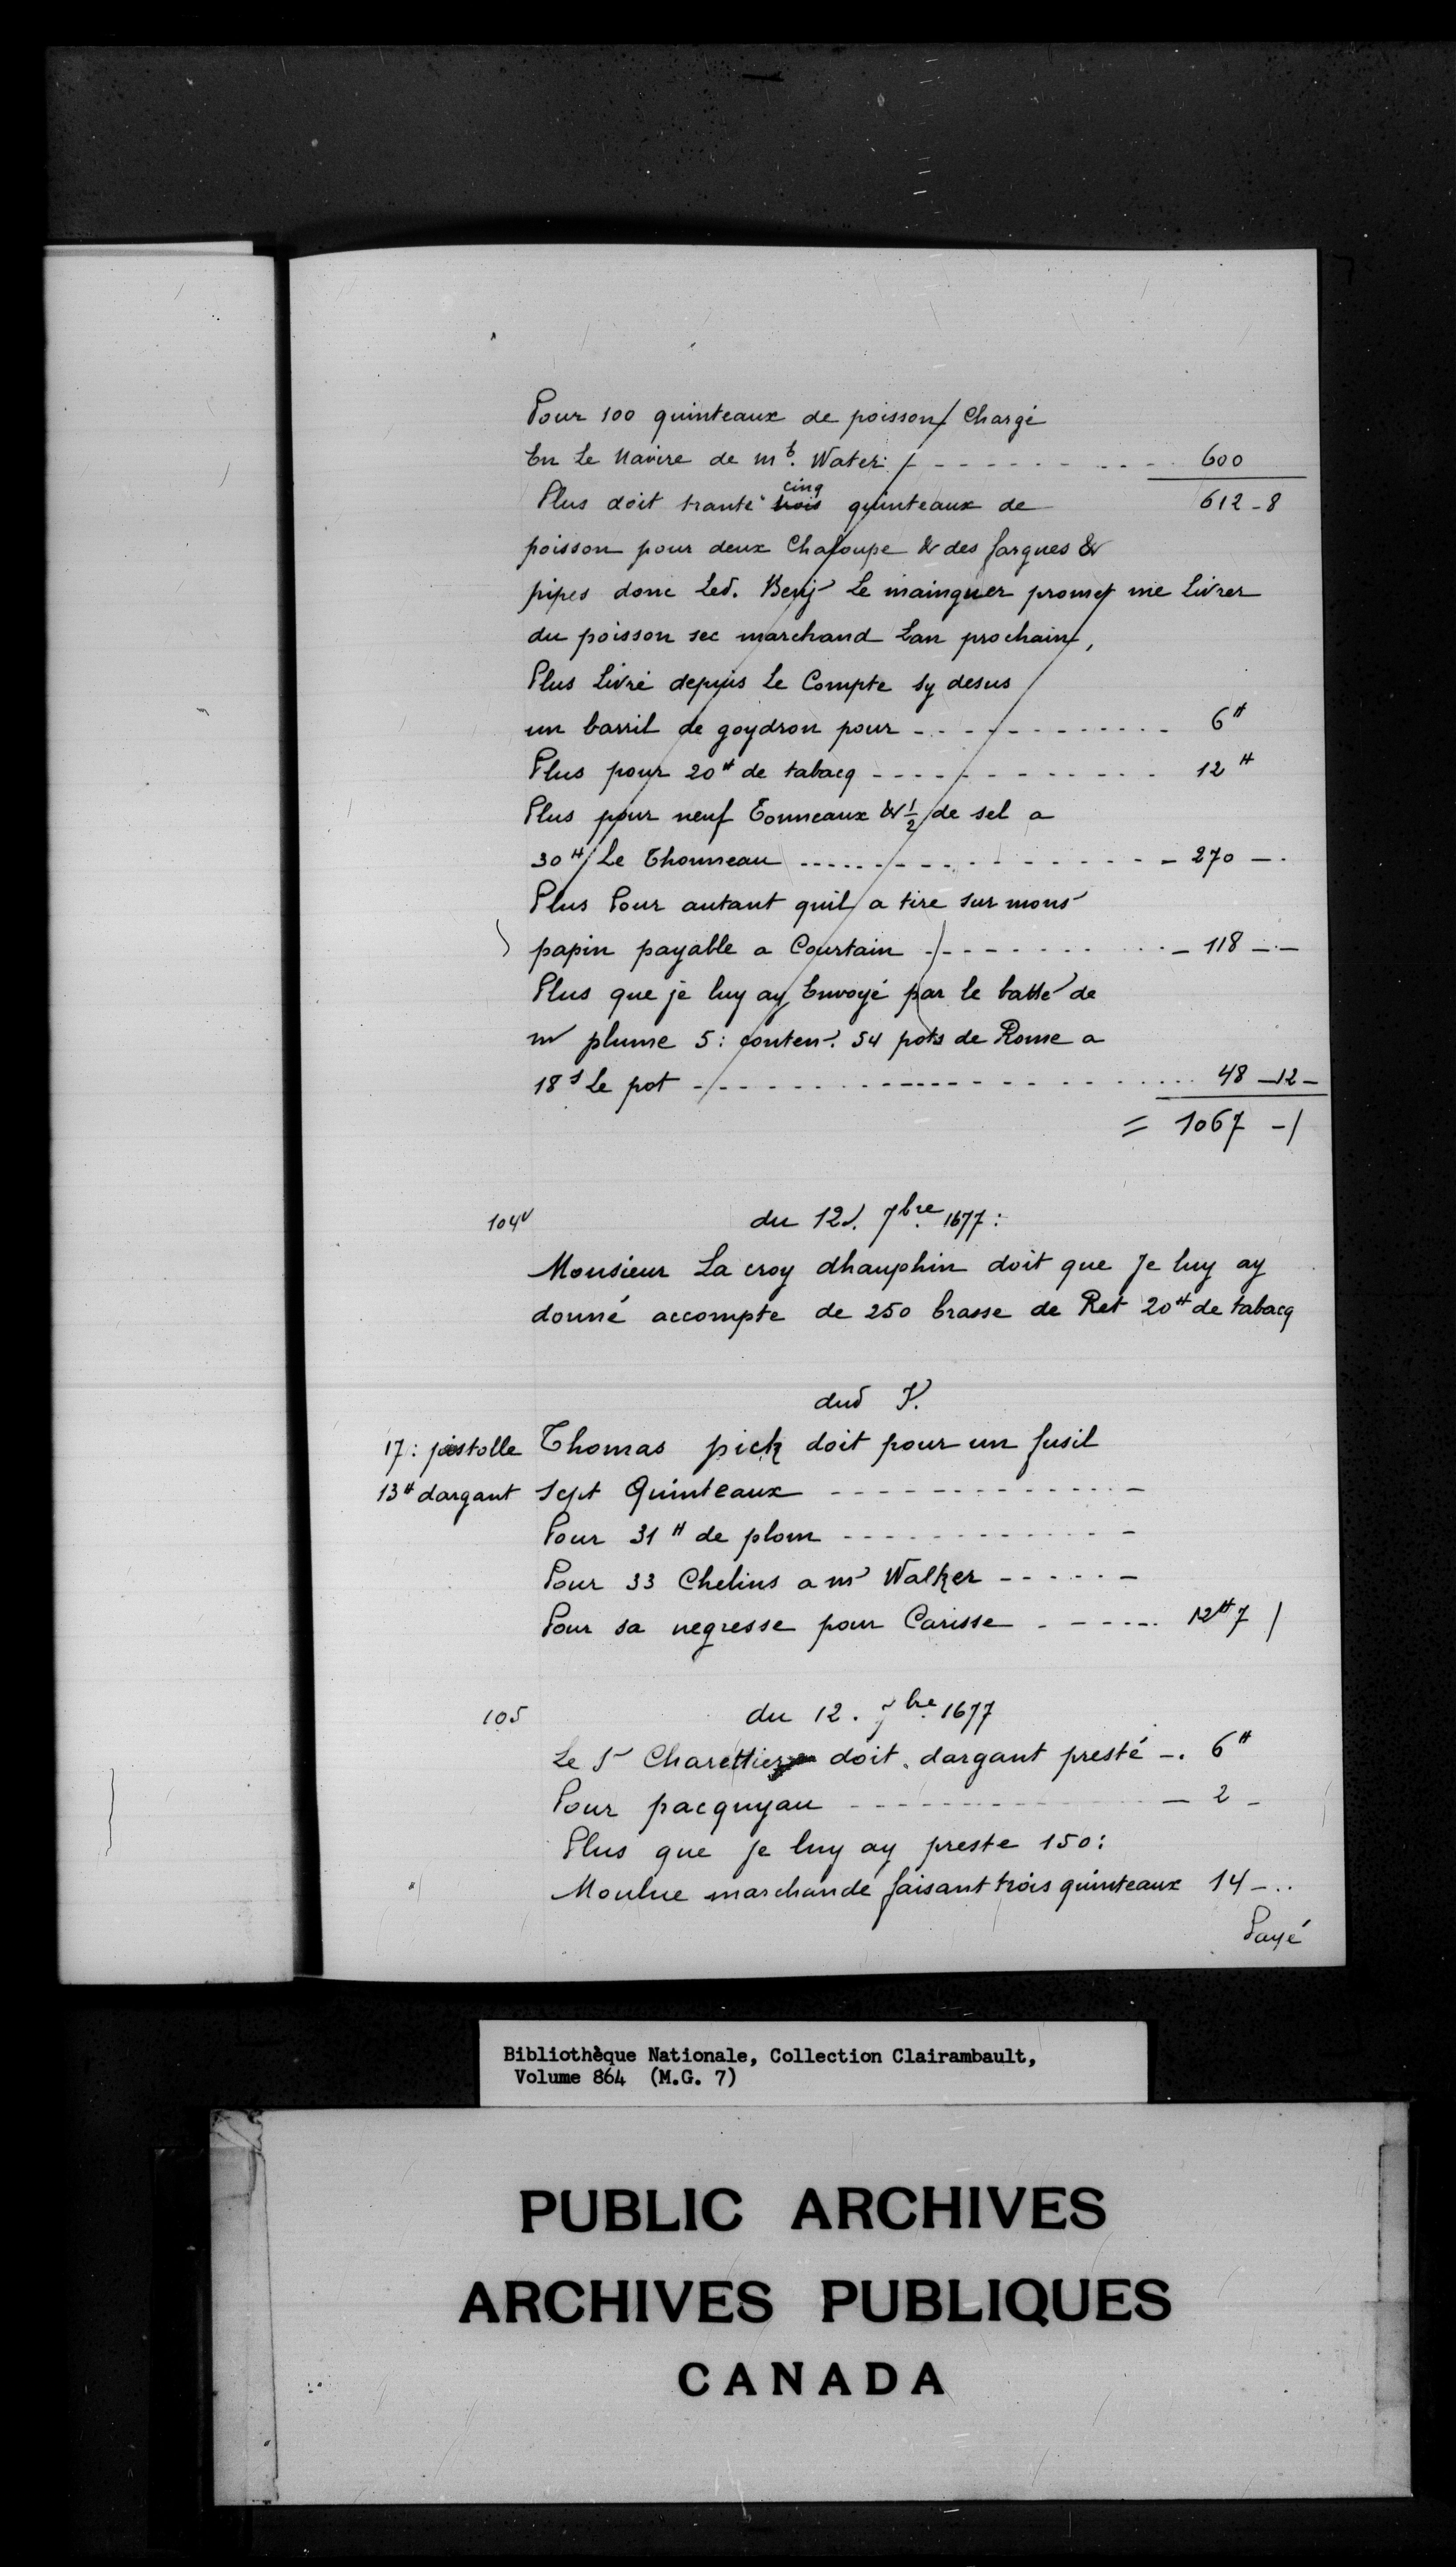 Pour 100 quinteaux de poisson Chargé
En Le Navire de mr. Water: - - - - - 600
Plus doit trante trois cinq quinteaux de 612 - 8
poisson pour deux Chaloupe & des fargues &
pipes donc Led. Benj Le mainguer promet me Livrer
du poisson sec marchand Lan prochain,
Plus Livré depuis Le Compte sy desus
un barril de goydron pour - - - - - 6#
Plus pour 20# de tabacq - - - - - 12#
Plus pour neuf Tonneaux & 1/2 de sel a
30# Le Thonneau - - - - - 270 - .
Plus Pour autant quil a tire sur mons
papin payable a Courtain - - - - - 118 - . -
Plus que je luy ay Envoyé par le batte de
mr plume 5: conten. 54 pots de Rome a
18s Le pot - - - - - 48 - 12 -
= 1067 - /
104v du 12d. 7bre 1677:
Monsieur La croy dhauphin doit que Je luy ay
donné accompte de 250 brasse de Ret 20# de tabacq
dud J.
17: pistolle Thomas pick doit pour un fusil
13# dargant sept Quinteaux - - - - -
Pour 31# de plom - - - - -
Pour 33 Chelins a mr Walker - - - - -
Pour sa negresse pour Carisse - - - - - 12# 7 /
105 du 12. 7bre 1677
Le Sr Charettier doit dargant presté - . 6#
Pour pacquyau - - - - - 2 -
Plus que je luy ay preste 150:
Moulue marchande faisant trois quinteaux 14 - ..
Payé
Bibliothèque Nationale, Collection Clairambault,
Volume 864 (M.G. 7)
PUBLIC ARCHIVES
ARCHIVES PUBLIQUES
CANADA